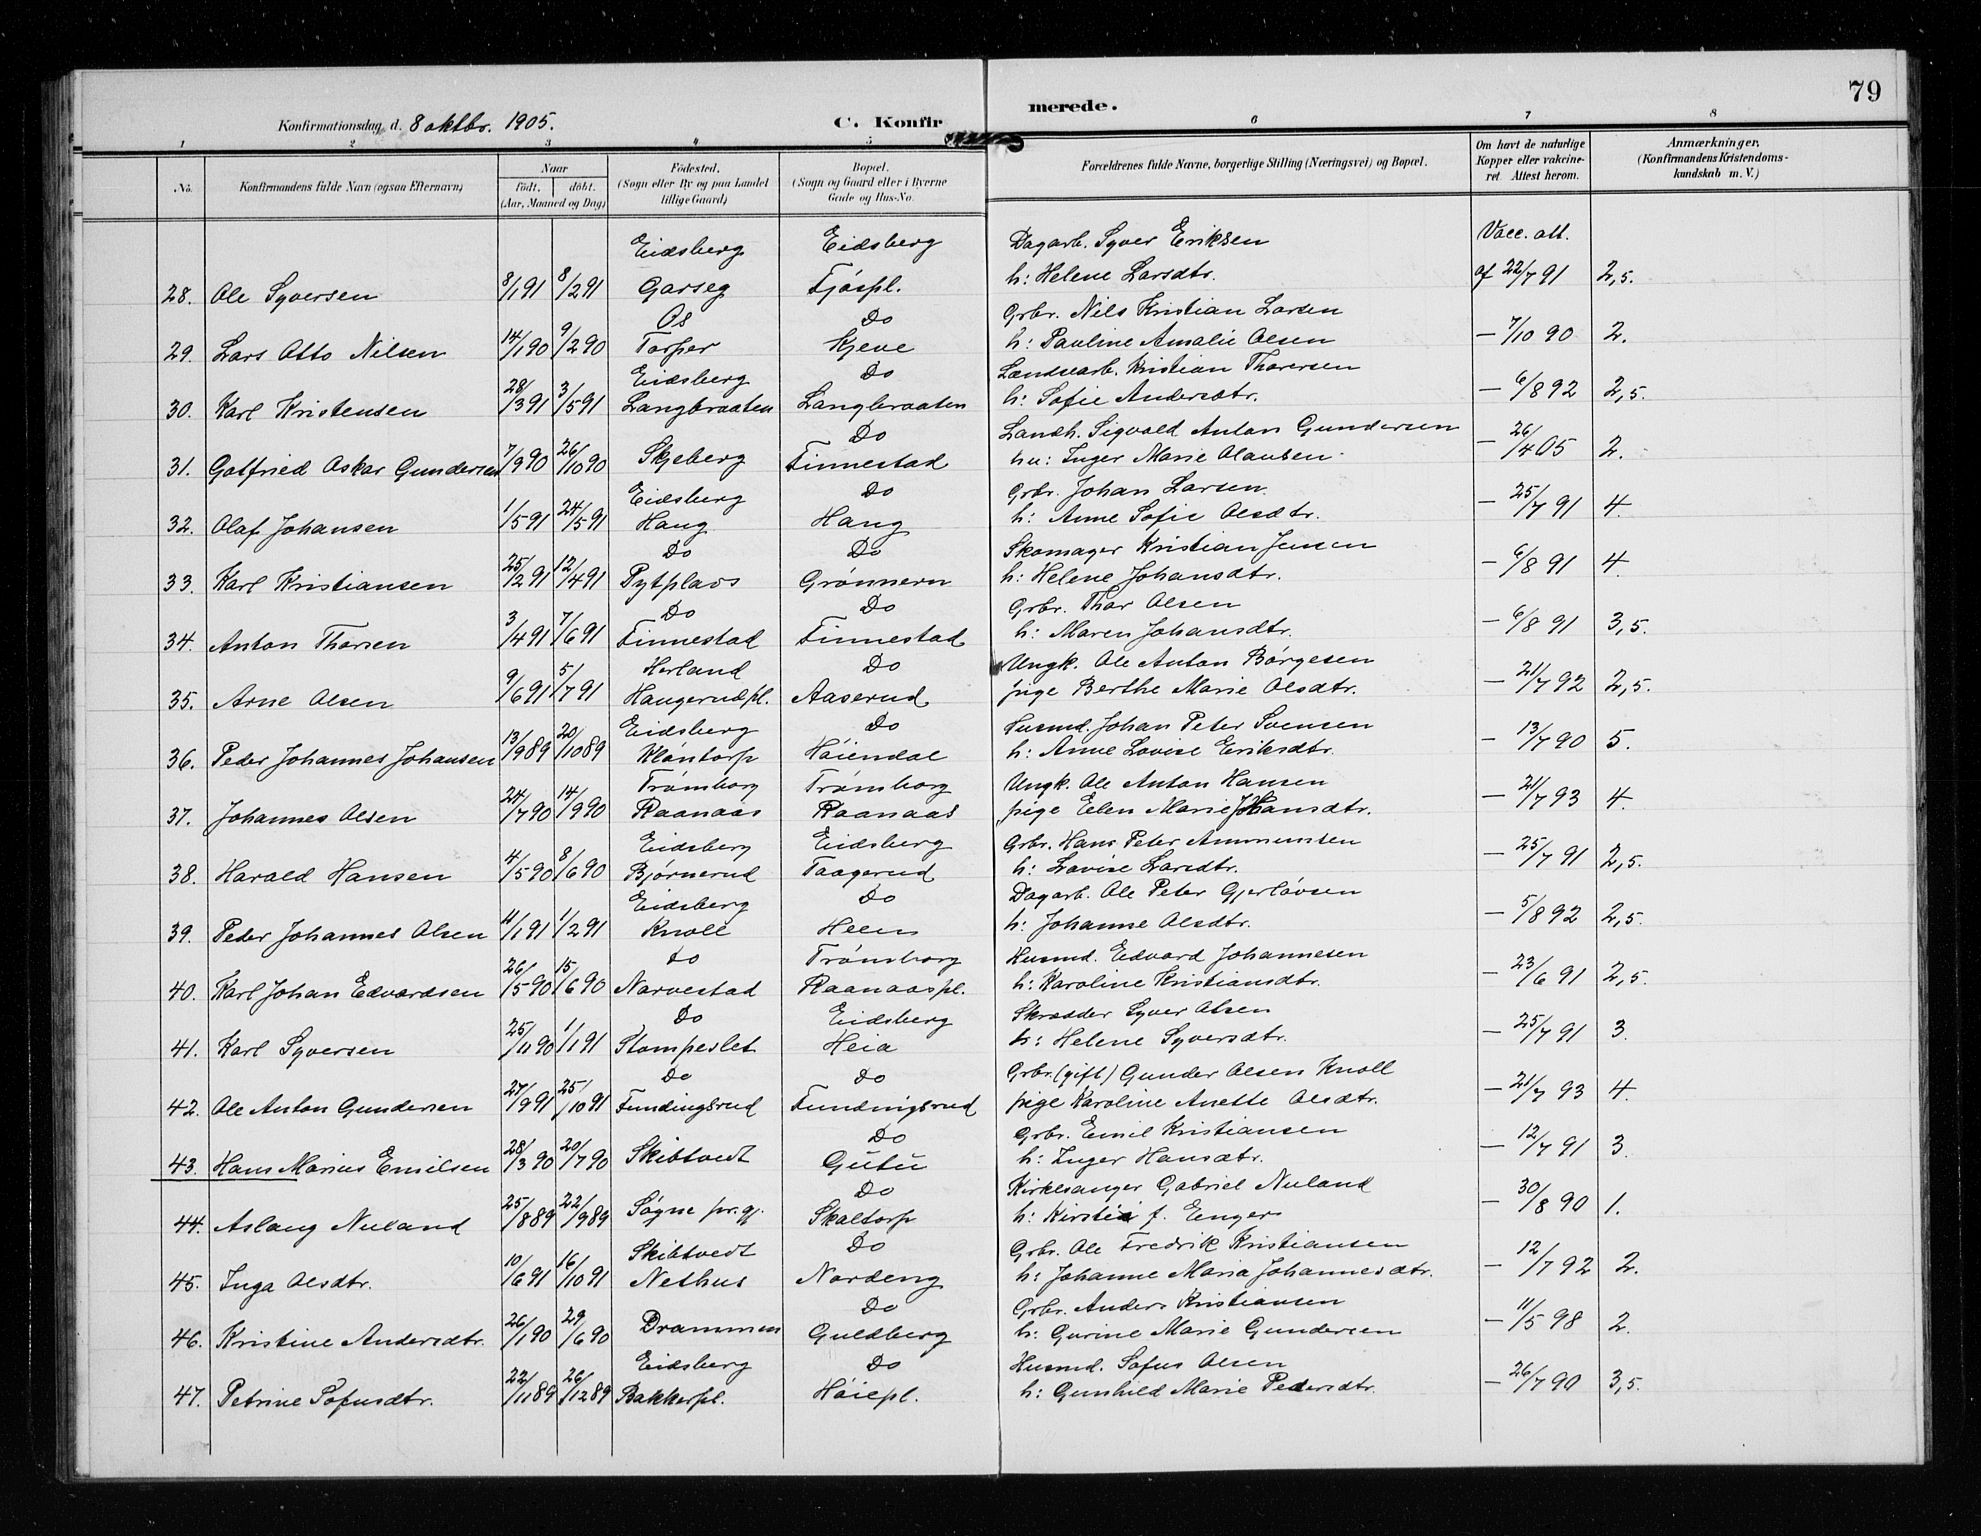 79
Konfirmationsdag d. 8 oktbr. 1905.
C. Konfir
merede.
1 2 3 4 5 6 7 8
No.
Konfirmandens fulde Navn (ogsaa Efternavn)
Naar
født. døbt.
(Aar, Maaned og Dag)
Fødested.
(Sogn eller By og paa Landet
tillige Gaard)
Bopæl.
(Sogn og Gaard eller i Byerne
Gade og Hus-No.
Forældrenes fulde Navne, borgerlige Stilling (Næringsvei) og Bopæl.
Om havt de naturlige
Kopper eller vakcine-
ret. Attest herom.
Anmærkninger,
(Konfirmandens Kristendoms-
kundskab m. V.)
Eidsberg Eidsberg Dagarb. Syver Eriksen Vacc. att.
28. Ole Syversen 8/1 91 8/2 91 Garseg Fjøspl. h: Helene Larsdtr. af 22/7 91 2,5.
Os Do Grbr. Nils Kristian Larsen
29. Lars Otto Nilsen 14/1 90 9/2 90 Torper Kjeve h: Pauline Amalie Olsen — 7/10 90 2.
Eidsberg Do Landsearb. Kristian Thoresen
30. Karl Kristensen 28/3 91 3/5 91 Langbraaten Langbraaten h: Sofie Andersdtr. — 6/8 92 2,5.
Do Landh. Sigvald Anton Gundersen
31. Gotfried Oskar Gundersen 7/9 90 26/10 90 Skjeberg Finnestad hu: Inger Marie Olausen — 26/4 05 2.
Eidsberg Do Grbr. Johan Larsen
32. Olaf Johansen 1/5 91 24/5 91 Haug Haug h: Anne Sofie Olsdtr. — 25/7 91 4.
Do Do Skomager Kristian Jensen
33. Karl Kristiansen 25/2 91 12/4 91 Pytplads Grønnern h: Helene Johansdtr. — 6/8 91 4.
Do Do Grbr. Thor Olsen
34. Anton Thorsen 3/4 91 7/6 91 Finnestad Finnestad h: Maren Johansdtr. — 6/8 91 3,5.
Herland Do Ungk. Ole Anton Børgesen
35. Arne Olsen 9/6 91 5/7 91 Haugerudpl. Aaserud pige Berthe Marie Olsdtr. — 21/7 92 2,5.
Eidsberg Do Husmd. Johan Peter Svensen
36. Peder Johannes Johansen 13/9 89 20/10 89 Kløntorp Høiendal h: Anne Lovise Eriksdtr. — 13/7 90 5.
Trømborg Trømborg Ungk. Ole Anton Hansen
37. Johannes Olsen 24/7 90 14/9 90 Raanaas Raanaas pige Elen Marie Johansdtr. — 21/7 93 4.
Eidsberg Eidsberg Grbr. Hans Peter Ammunsen
38. Harald Hansen 4/5 90 8/6 90 Bjørnerud Taagerud h: Lovise Larsdtr. — 25/7 91 2,5.
Eidsberg Do Dagarb. Ole Peter Gjerløvsen
39. Peder Johannes Olsen 4/1 91 1/2 91 Knoll Heen h: Johanne Olsdtr. — 5/8 92 2,5.
do Trømborg Husmd. Edvard Johannesen
40. Karl Johan Edvardsen 26/5 90 15/6 90 Narvestad Raanaaspl. h: Karoline Kristiansdtr. — 23/6 91 2,5.
Do Eidsberg Skrædder Syver Olsen
41. Karl Syversen 25/11 90 1/1 91 Stompeslet Heia h: Helene Syversdtr. — 25/7 91 3.
Do do Grbr. (gift) Gunder Olsen Knoll
42. Ole Anton Gundersen 27/9 91 25/10 91 Fundingsrud Fundingsrud pige Karoline Anette Olsdtr. — 21/7 93 4.
Do Grbr. Emil Kristiansen
43. Hans Marius Emilsen 28/3 90 20/7 90 Skibtvedt Gutu h: Inger Hansdtr. — 12/7 91 3.
Do Kirkesanger Gabriel Nuland
44. Aslaug Nuland 25/8 89 22/9 89 Søgne pr.gj. Skaltorp h: Kirstin f. Enger — 30/8 90 1.
Skibtvedt Do Grbr. Ole Fredrik Kristiansen
45. Inga Olsdtr. 10/6 91 16/10 91 Nethus Nordeng h: Johanne Maria Johannesdtr. — 12/7 92 2.
Do Grbr. Anders Kristiansen
46. Kristine Andersdtr. 26/1 90 29/6 90 Drammen Guldberg h: Gurine Marie Gundersen — 11/5 98 2.
Eidsberg Do Husmd. Sofus Olsen
47. Petrine Sofusdtr. 22/11 89 26/12 89 Bakkerpl. Høiepl. h: Gunhild Marie Pedersdtr. — 26/7 90 3,5.